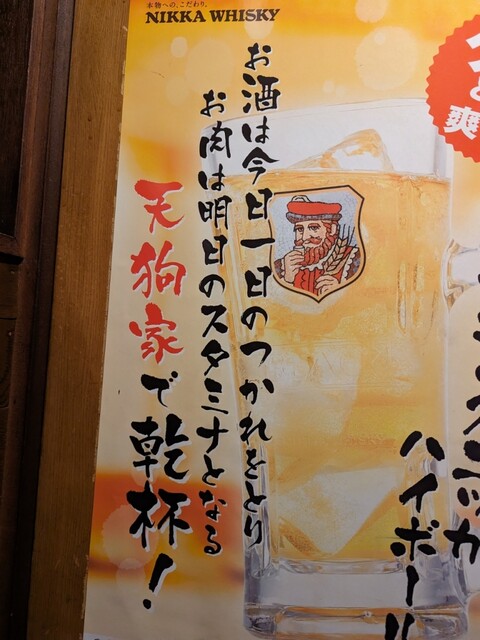 本物への、こだわり。
NIKKA WHISKY
ハイボール
お酒は今日一日のつかれをとり
お肉は明日のスタミナとなる
天狗家で乾杯!
爽